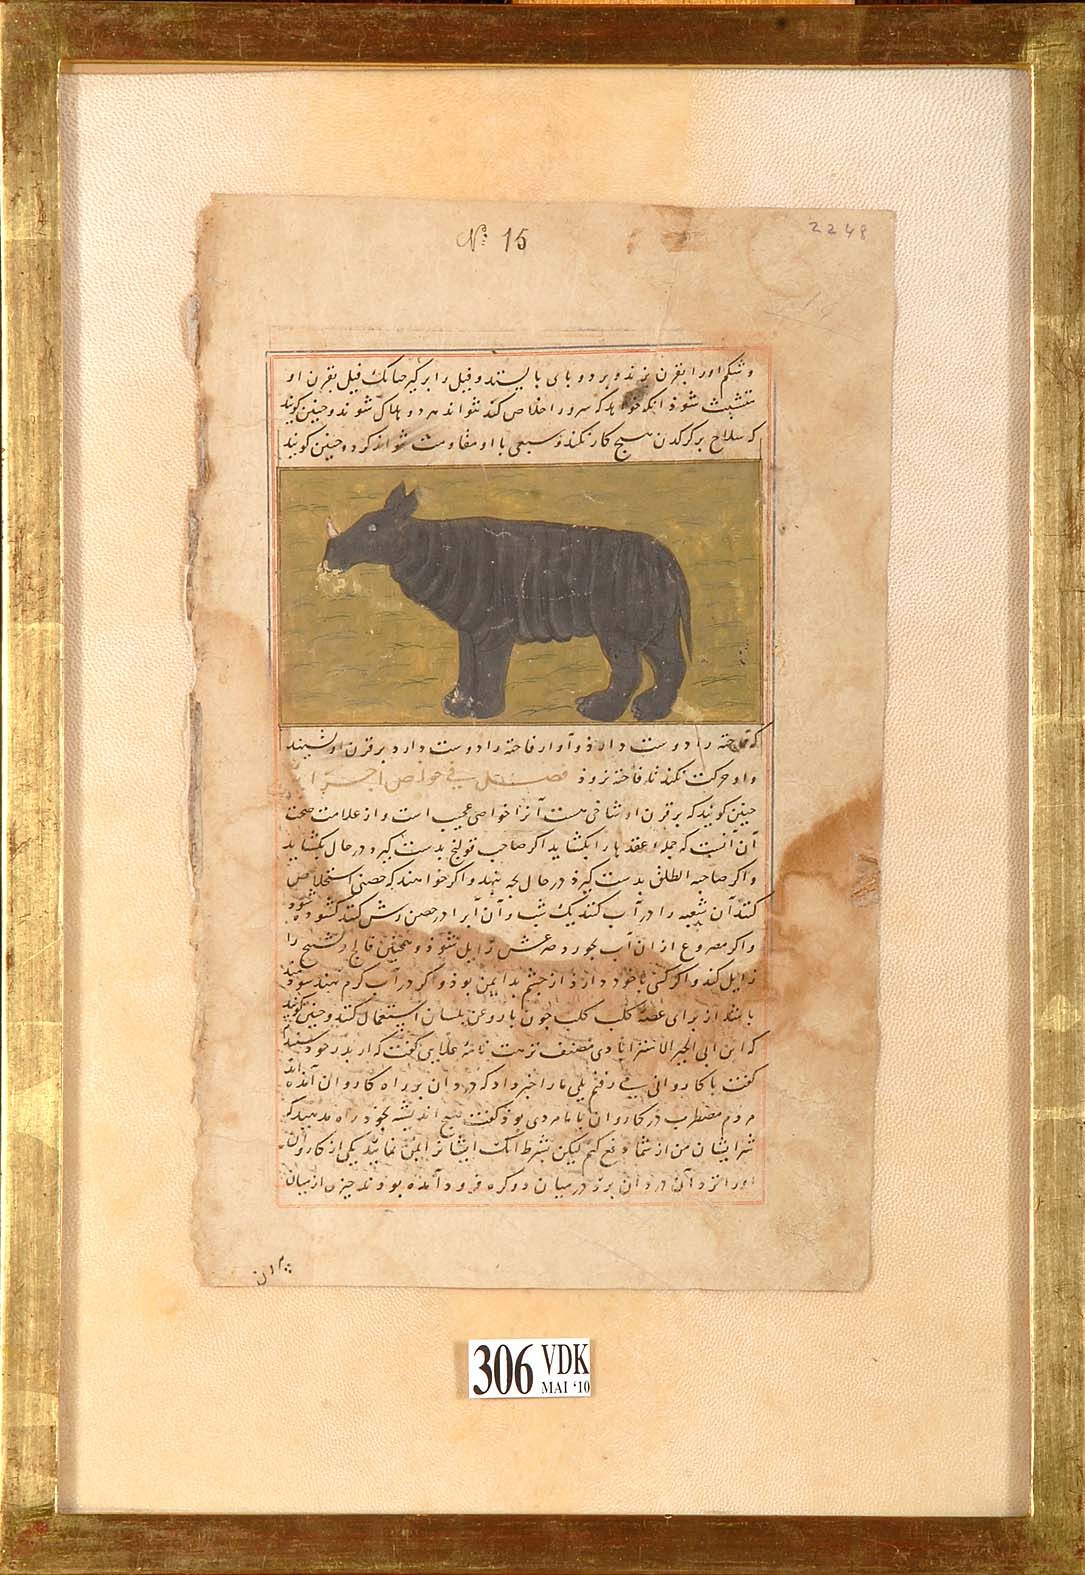 Nº 15
2248
و شکم اورا بقرن بزند و بر دو پای بایستد و فیل را برگیرد تا آنک فیل بقرن او
متشبث شود آنکه خواهد که سرورا خلاص کند نتواند هر دو هلاک شوند و چنین گویند
که سلاح بر کرکدن هیچ کار نکند و سبعی با او مقاومت نتواند کرد و چنین گویند
که فاخته را دوست دارد و آواز فاخته را دوست دارد بر قرن او نشیند
و او حرکت نکند تا فاخته نرود فصل في خواص اجزائه
چنین گویند که بر قرن او شاخی هست آنرا خواصی عجیب است و از علامت صحت
آن آنست که جمله عقدها را بکشاید اکر صاحب قولنج بدست گیرد در حال بکشاید
و اکر صاحبه الطلق بدست گیرد در حال بچه بنهد و اکر خواهند که حصنی استخلاص
کنند آن شعبه را در آب کنند یک شب و آن آب را در حصن رش کنند کشوده شود
و اکر مصروع از ان آب بخورد صرعش زایل شود و همچنین فالج و تشنج را
زایل کند و اکر کسی با خود دارد از چشم بد ایمن بود و اکر در آب گرم نهند سود
باشد از برای عضه کلب کلب چون با روغن بلسان استعمال کنند و چنین گویند
که ابن ابی الخیر الاسترابادی مصنف نزهت نامه علایی گفت که از پدر خود شنیدم
گفت با کاروانی می رفتم یکی ما را خبر داد که دزدان بر راه کاروان آمده اند
مردم مضطرب در کاروان با ما مردی بود گفت هیچ اندیشه بخود راه مدهید که
شر ایشان من از شما دفع کنم لیکن بشرط آنک ایشانرا بمن نمایید یکی از کاروان
اورا نزد آن دزدان برد در میان دو کره فرود آمده بودند چیزی از میان
306 VDK
MAI '10